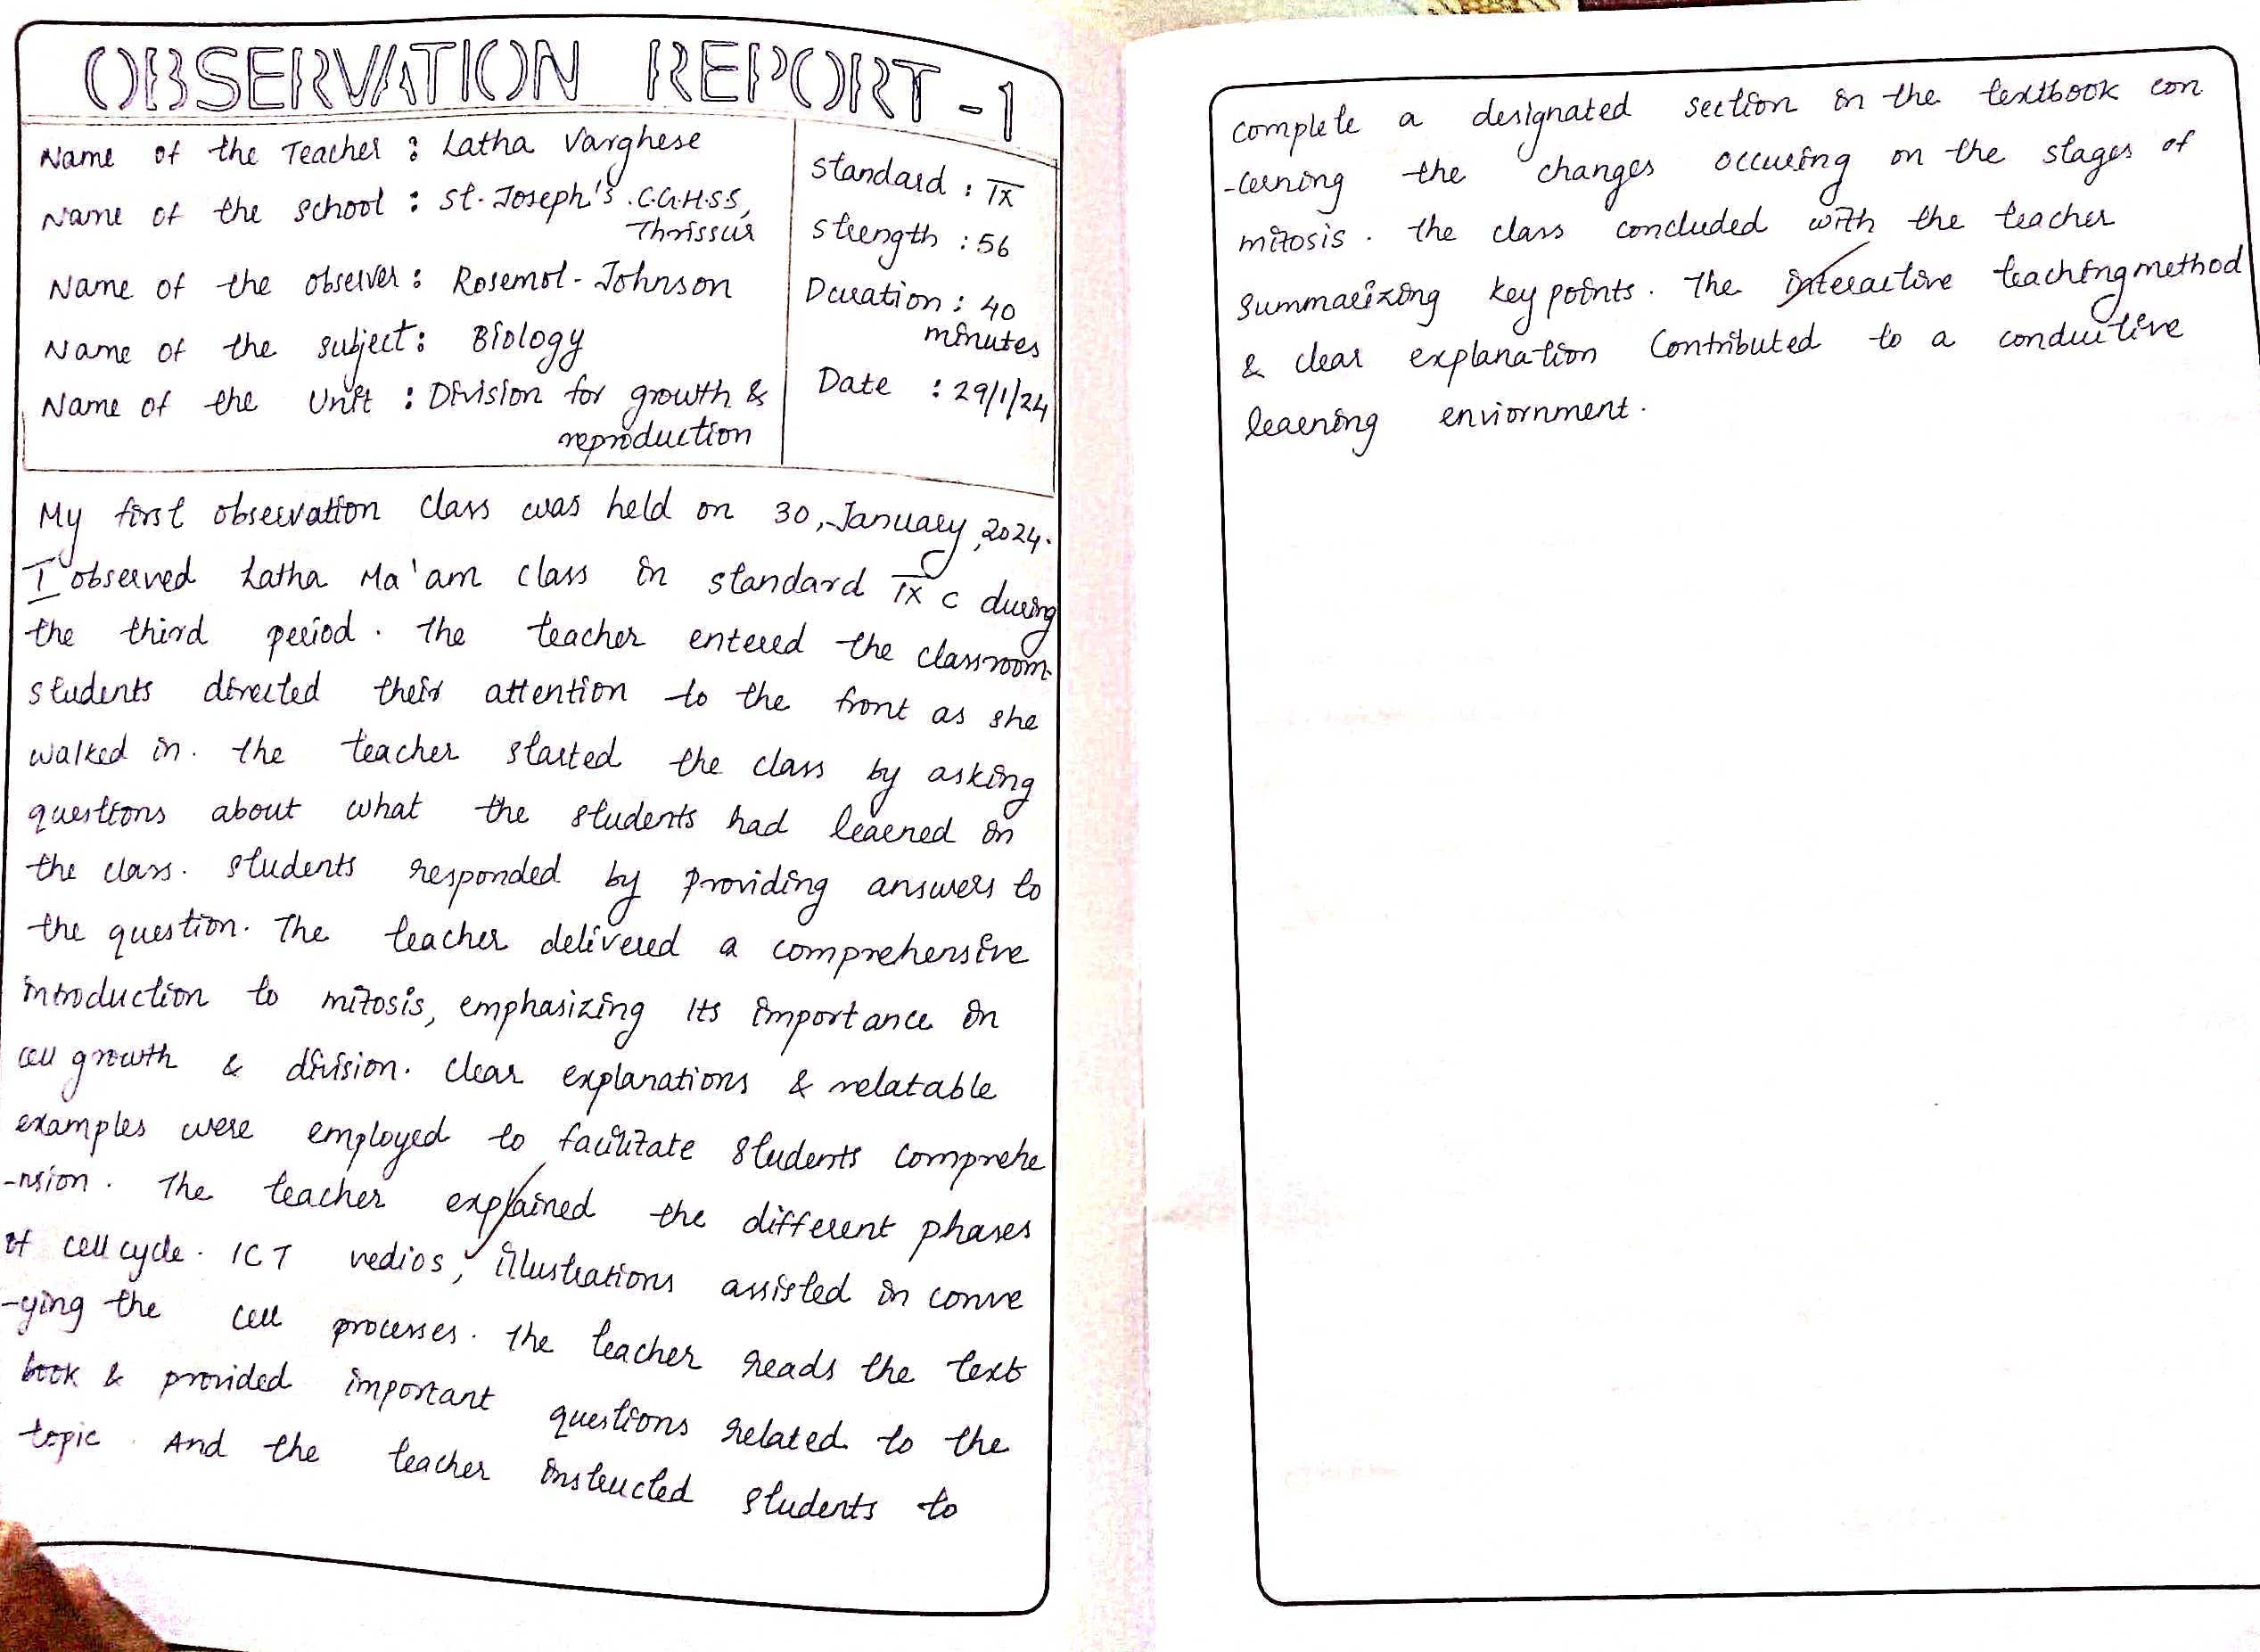 OBSERVATION REPORT - 1
Name of the Teacher : Latha Varghese
Name of the school : St. Joseph's .C.G.H.S.S,
Thrissur
Name of the observer : Rosemol - Johnson
Name of the subject : Biology
Name of the Unit : Division for growth &
reproduction
Standard : IX
Strength : 56
Duration : 40
minutes
Date : 29/1/24
My first observation class was held on 30, January, 2024.
I observed Latha Ma'am class in standard IX C during
the third period. The teacher entered the classroom
students directed their attention to the front as she
walked in. the teacher started the class by asking
questions about what the students had learned in
the class. Students responded by providing answers to
the question. The teacher delivered a comprehensive
introduction to mitosis, emphasizing its importance in
cell growth & division. Clear explanations & relatable
examples were employed to facilitate students comprehe
-nsion. The teacher explained the different phases
of cell cycle. ICT vedios, illustrations assisted in conve
-ying the cell processes. The teacher reads the text
book & provided important questions related to the
topic. And the teacher instructed students to
complete a designated section in the textbook con
-cerning the changes occuring on the stages of
mitosis. the class concluded with the teacher
Summarizing key points. The interactive teaching method
& clear explanation Contributed to a conducitive
learning enviornment.